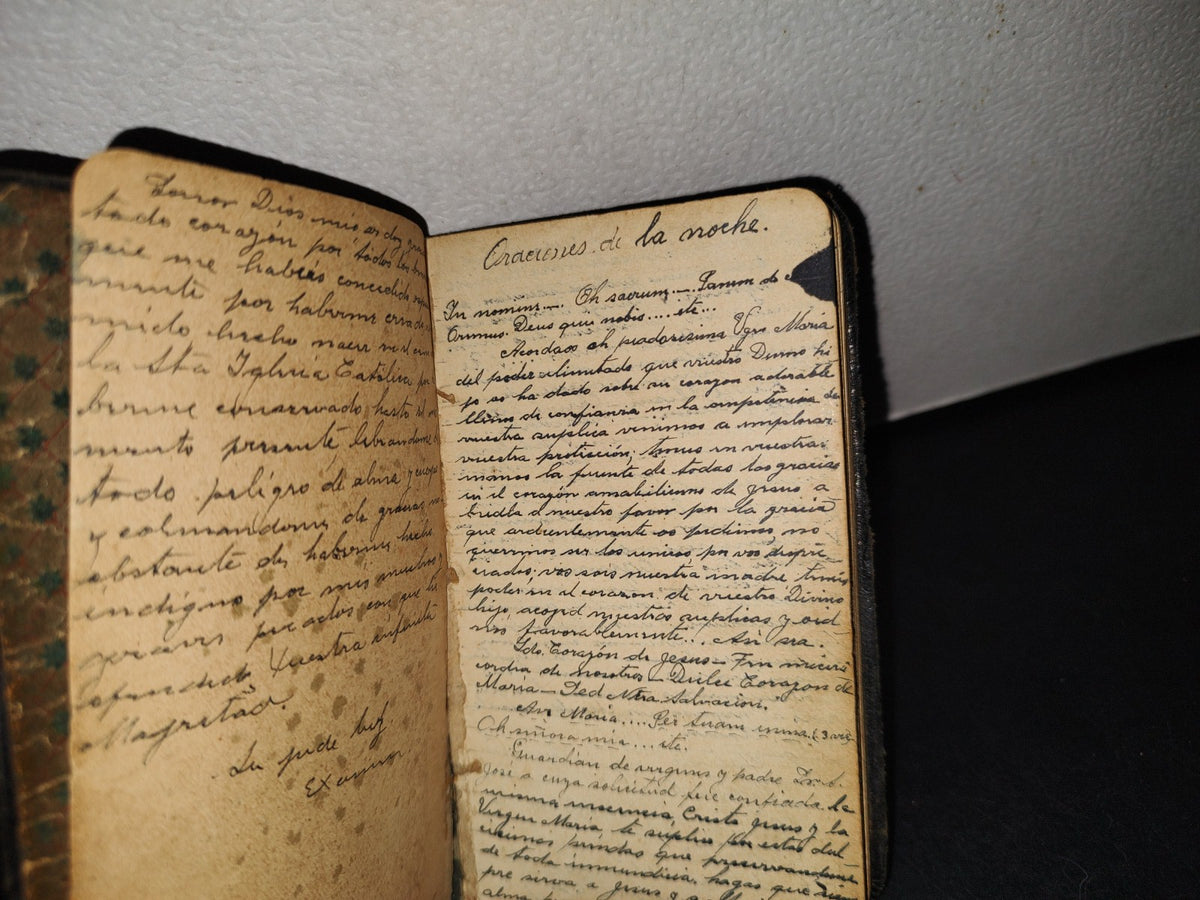 Señor Dios mio os doy gra
todo corazón por todos los
que me habeis concedido
mente por haberme criado
hecho nacer en el
la Sta Iglesia Católica por
berme conservado hasta el
mento presente librandome
todo peligro de alma y cuerpo
y colmandome de gracias no
obstante de haberme hecho
indigno por mis muchos y
graves pecados con que he
ofendido Vuestra infinita
Magestad.
Se pide luz
Examen
Oraciones de la noche.
In nomine.... Oh sacrum.... Panem de c
Oremus. Deus qui nobis.... etc...
Acordaos oh piadosisima Vgn Maria
del poder ilimitado que vuestro Divino hi
jo os ha dado sobre su corazon adorable
llenos de confianza en la omnipotencia de
vuestra suplica venimos a implorar
vuestra protección; teneis en vuestras
manos la fuente de todas las gracias
en el corazón amabilisimo de Jesus a
bridla a nuestro favor por la gracia
que ardientemente os pedimos, no
queremos ser los unicos por vos despre
ciados; vos sois nuestra madre teneis
poder en el corazon de vuestro Divino
hijo, acoged nuestras suplicas y oid
nos favorablemente... Asi sea.
Sdo. Corazón de Jesus = Ten miseri
cordia de nosotros = Dulce Corazon de
Maria = Sed Ntra Salvacion.
Ave Maria.... Per tuam inma. (3 aves
Oh señora mia... etc.
Guardian de virgenes y padre
José a cuya solicitud fue confiada la
misma inocencia, Cristo Jesus y la
Virgen Maria, te suplico por estas dul
cisimas prendas que preservandome
de toda inmundicia, hagas que siem
pre sirva a Jesus y
alma